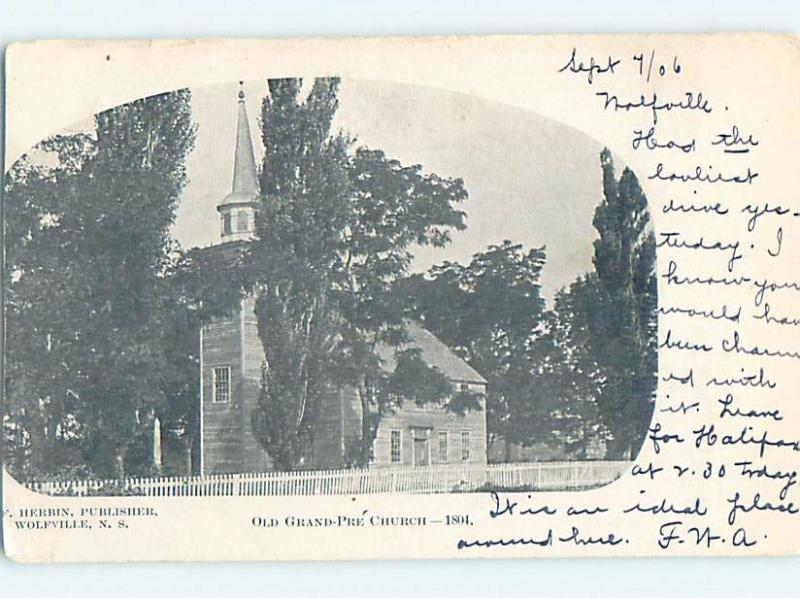 Sept 7/06
Wolfville.
Had the
loveliest
drive yes-
terday. I
know you
would have
been charm
ed with
it. Leave
for Halifax
at 2.30 today
It is an ideal place
around here. F.W.A.
F. HERBIN, PUBLISHER,
WOLFVILLE, N. S.
OLD GRAND-PRÉ CHURCH — 1804.